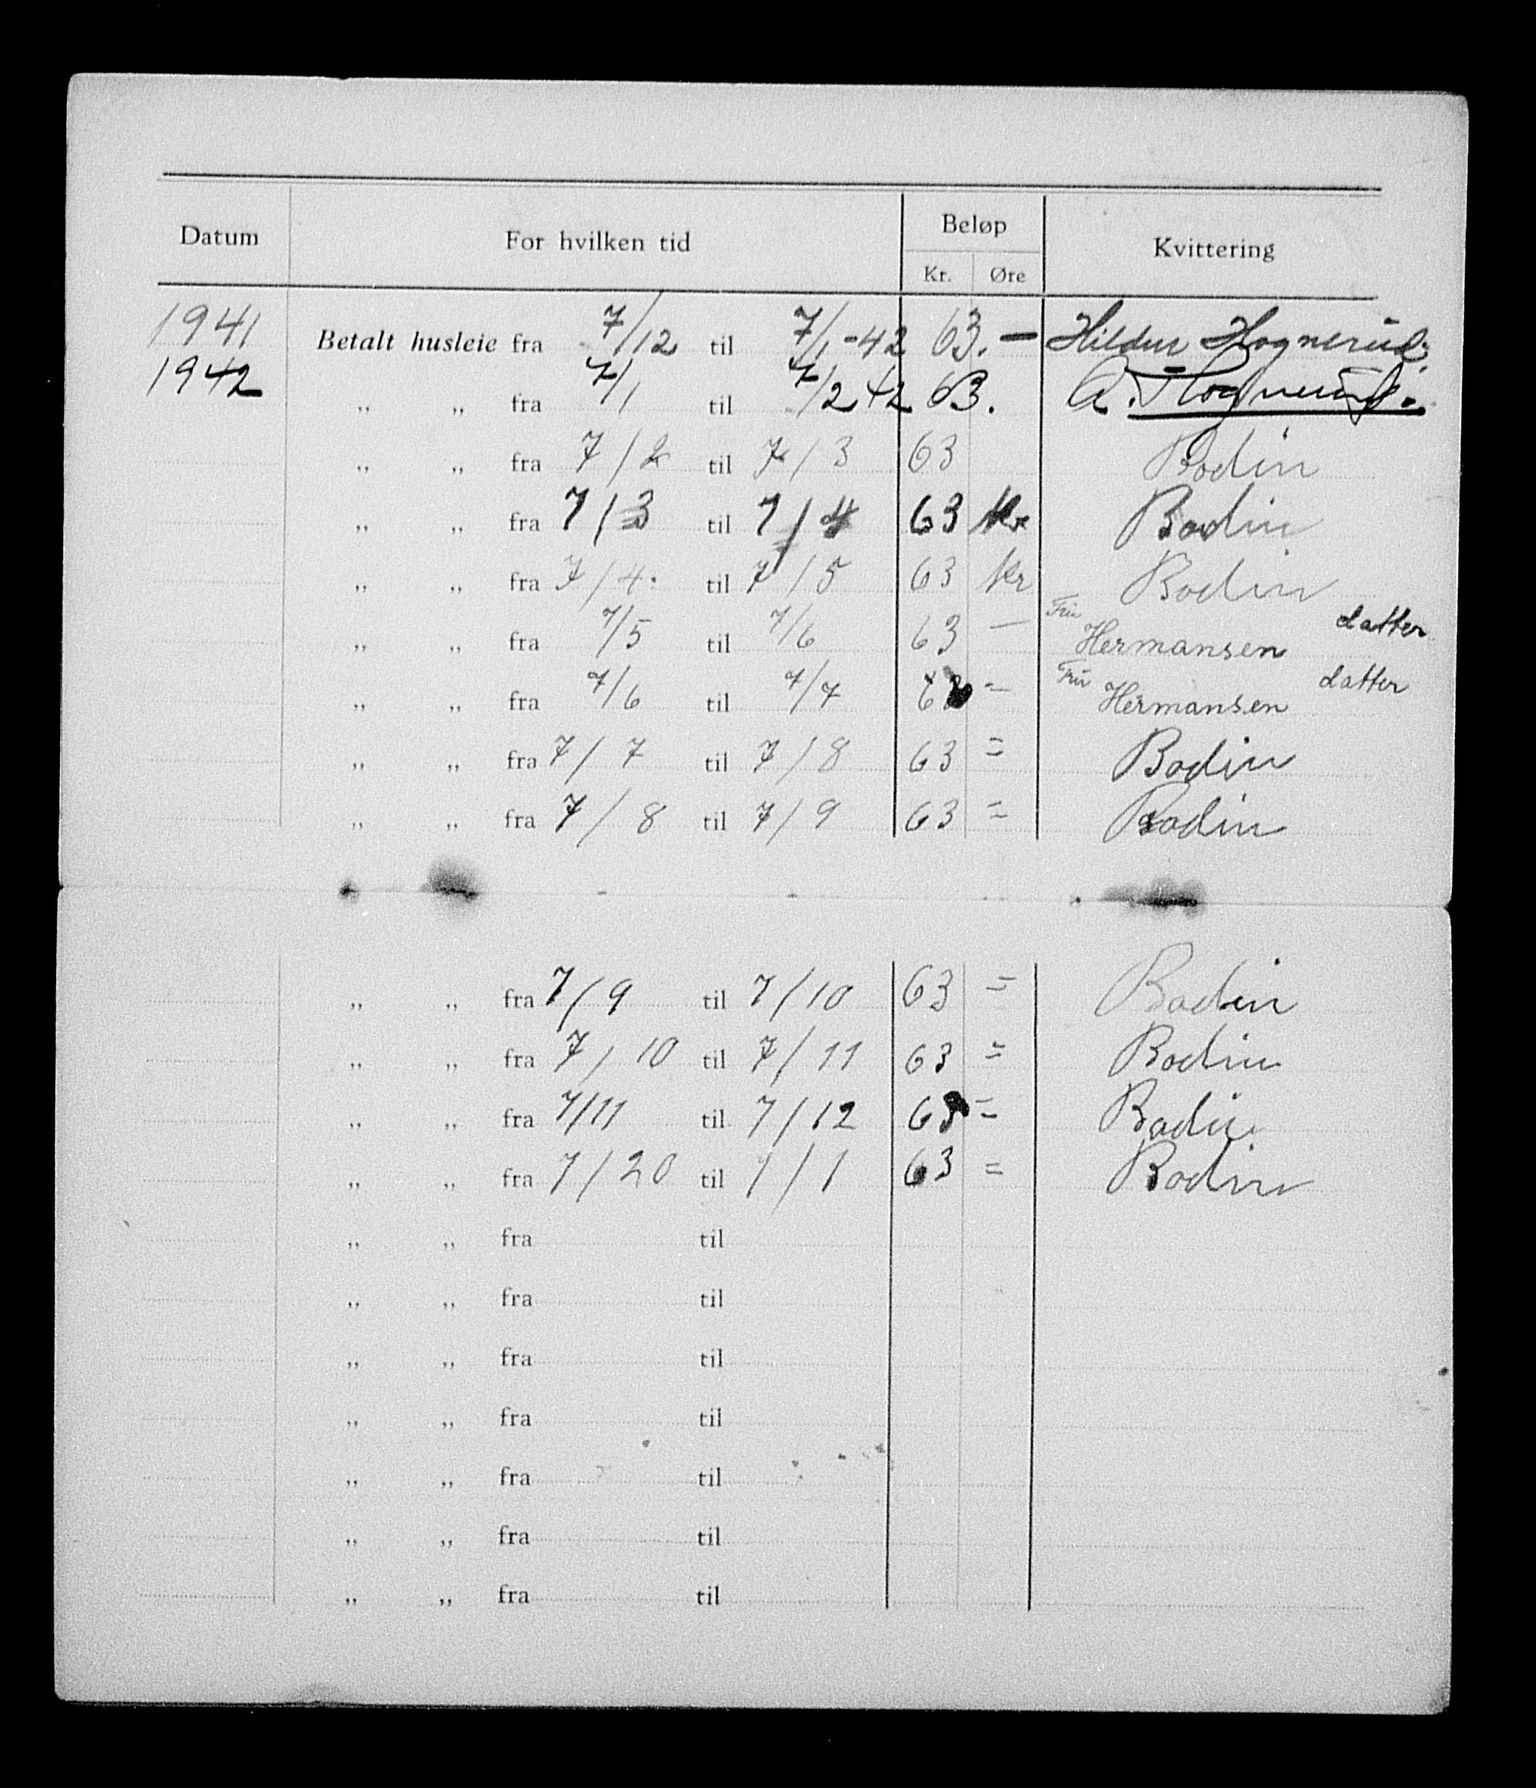 Datum For hvilken tid Beløp Kvittering
Kr. Øre
1941 Betalt husleie fra 7/12 til 7/1-42 63.— Hildur Hognerud.
1942 „ „ fra 7/1 til 7/2 42 63. A. Hognerud.
„ „ fra 7/2 til 7/3 63 Bodin
„ „ fra 7/3 til 7/4 63 kr Bodin
„ „ fra 7/4. til 7/5 63 kr Bodin
„ „ fra 7/5 til 7/6 63 — Fru Hermansen datter
„ „ fra 7/6 til 7/7 63 = Fru Hermansen datter
„ „ fra 7/7 til 7/8 63 = Bodin
„ „ fra 7/8 til 7/9 63 = Bodin
„ „ fra 7/9 til 7/10 63 = Bodin
„ „ fra 7/10 til 7/11 63 = Bodin
„ „ fra 7/11 til 7/12 63 = Bodin
„ „ fra 7/20 til 7/1 63 = Bodin
„ „ fra til
„ „ fra til
„ „ fra til
„ „ fra til
„ „ fra til
„ „ fra til
„ „ fra til